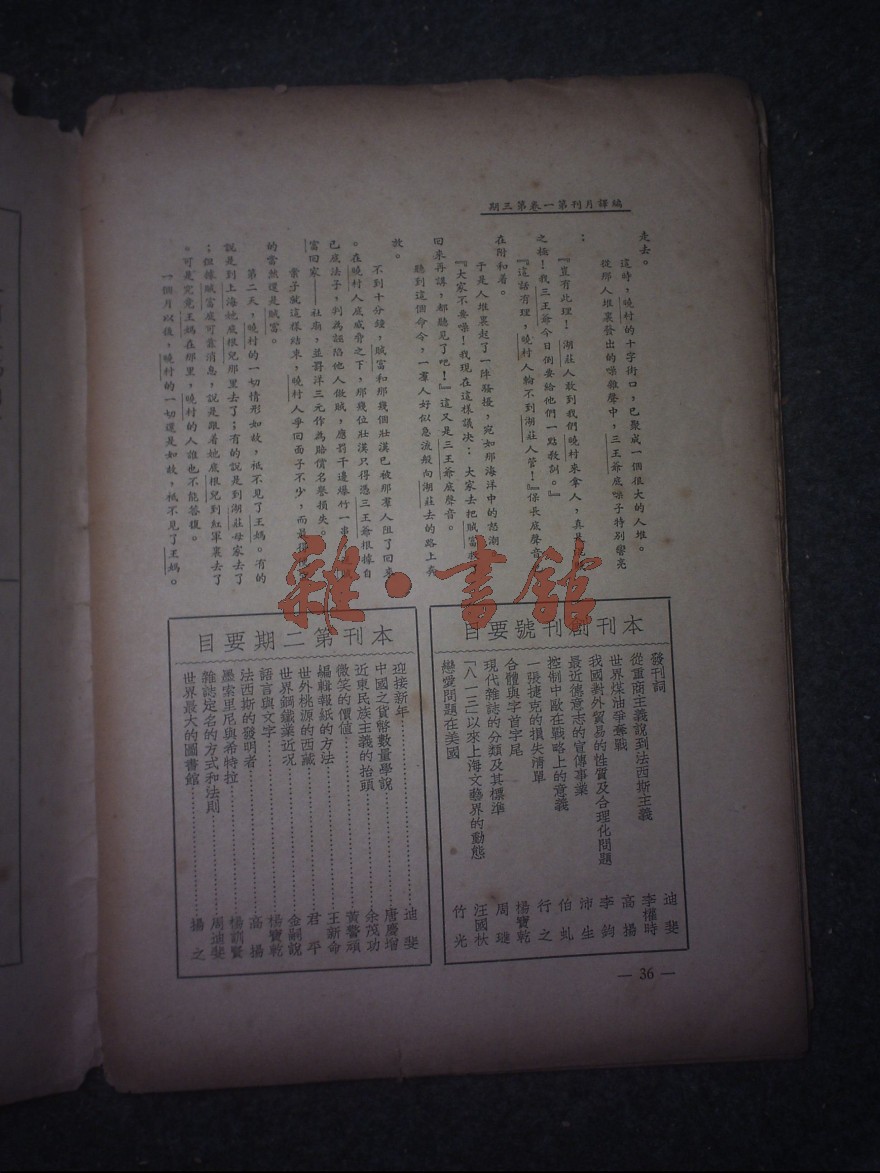 編譯月刊第一卷第三期
走去。
這時，曉村的十字街口，已聚成一個很大的人堆。
從那人堆裏發出的嘈雜聲中，三王爺底嗓子特別響亮
：
『豈有此理！湖莊人敢到我們曉村來拿人，真是
之極！我三王爺今日倒要給他們一點教訓。』
『這話有理，曉村人輪不到湖莊人管！』保長底聲音
在附和着。
于是人堆裏起了一陣騷擾，宛如那海洋中的怒潮
『大家不要嘈！我現在這樣議决：大家去把賊富
回來再講，都聽見了吧！』這又是三王爺底聲音。
聽到這個命令，一羣人好似急流般向湖莊去的路上奔
放。
不到十分鐘，賊富和那幾個壯漢已被那羣人阻了回來
。在曉村人底威脅之下，那幾位壯漢只得憑三王爺根據自
己底法子，判為誣陷他人做賊，應罰千邊爆竹一事
富回家——社廟，並罰洋三元作為賠償名譽損失。
案子就這樣結束，曉村人爭回面子不少，而最
的當然還是賊富。
第二天，曉村的一切情形如故，祇不見了王媽。有的
說是到上海她底根兒那里去了；有的說是到湖莊母家去了
；但據賊富底可靠消息，說是跟着她底根兒到紅軍裏去了
。可是究竟王媽在那里，曉村的人誰也不能答復。
一個月以後，曉村的一切還是如故，祇不見了王媽。
本刊創刊號要目
發刊詞 迪斐
從重商主義說到法西斯主義 李權時
世界煤油爭奪戰 高揚
我國對外貿易的性質及合理化問題 李鈞
最近德意志的宣傳事業 沛生
控制中歐在戰略上的意義 伯虬
一張捷克的損失清單 行之
合體與字首字尾 楊寶乾
現代雜誌的分類及其標準 周璉
「八一三」以來上海文藝界的動態 汪國杕
戀愛問題在美國 竹光
本刊第二期要目
迎接新年 迪斐
中國之貨幣數量學說 唐慶增
近東民族主義的抬頭 余茂功
微笑的價值 黃警頑
編輯報紙的方法 王新命
世外桃源的西藏 君平
世界鋼鐵業近況 金嗣說
語言與文字 楊寶乾
法西斯的發明者 高揚
墨索里尼與希特拉 楊訓賢
雜誌定名的方式和法則 周迪斐
世界最大的圖書館 揚之
— 36 —
雜·書館